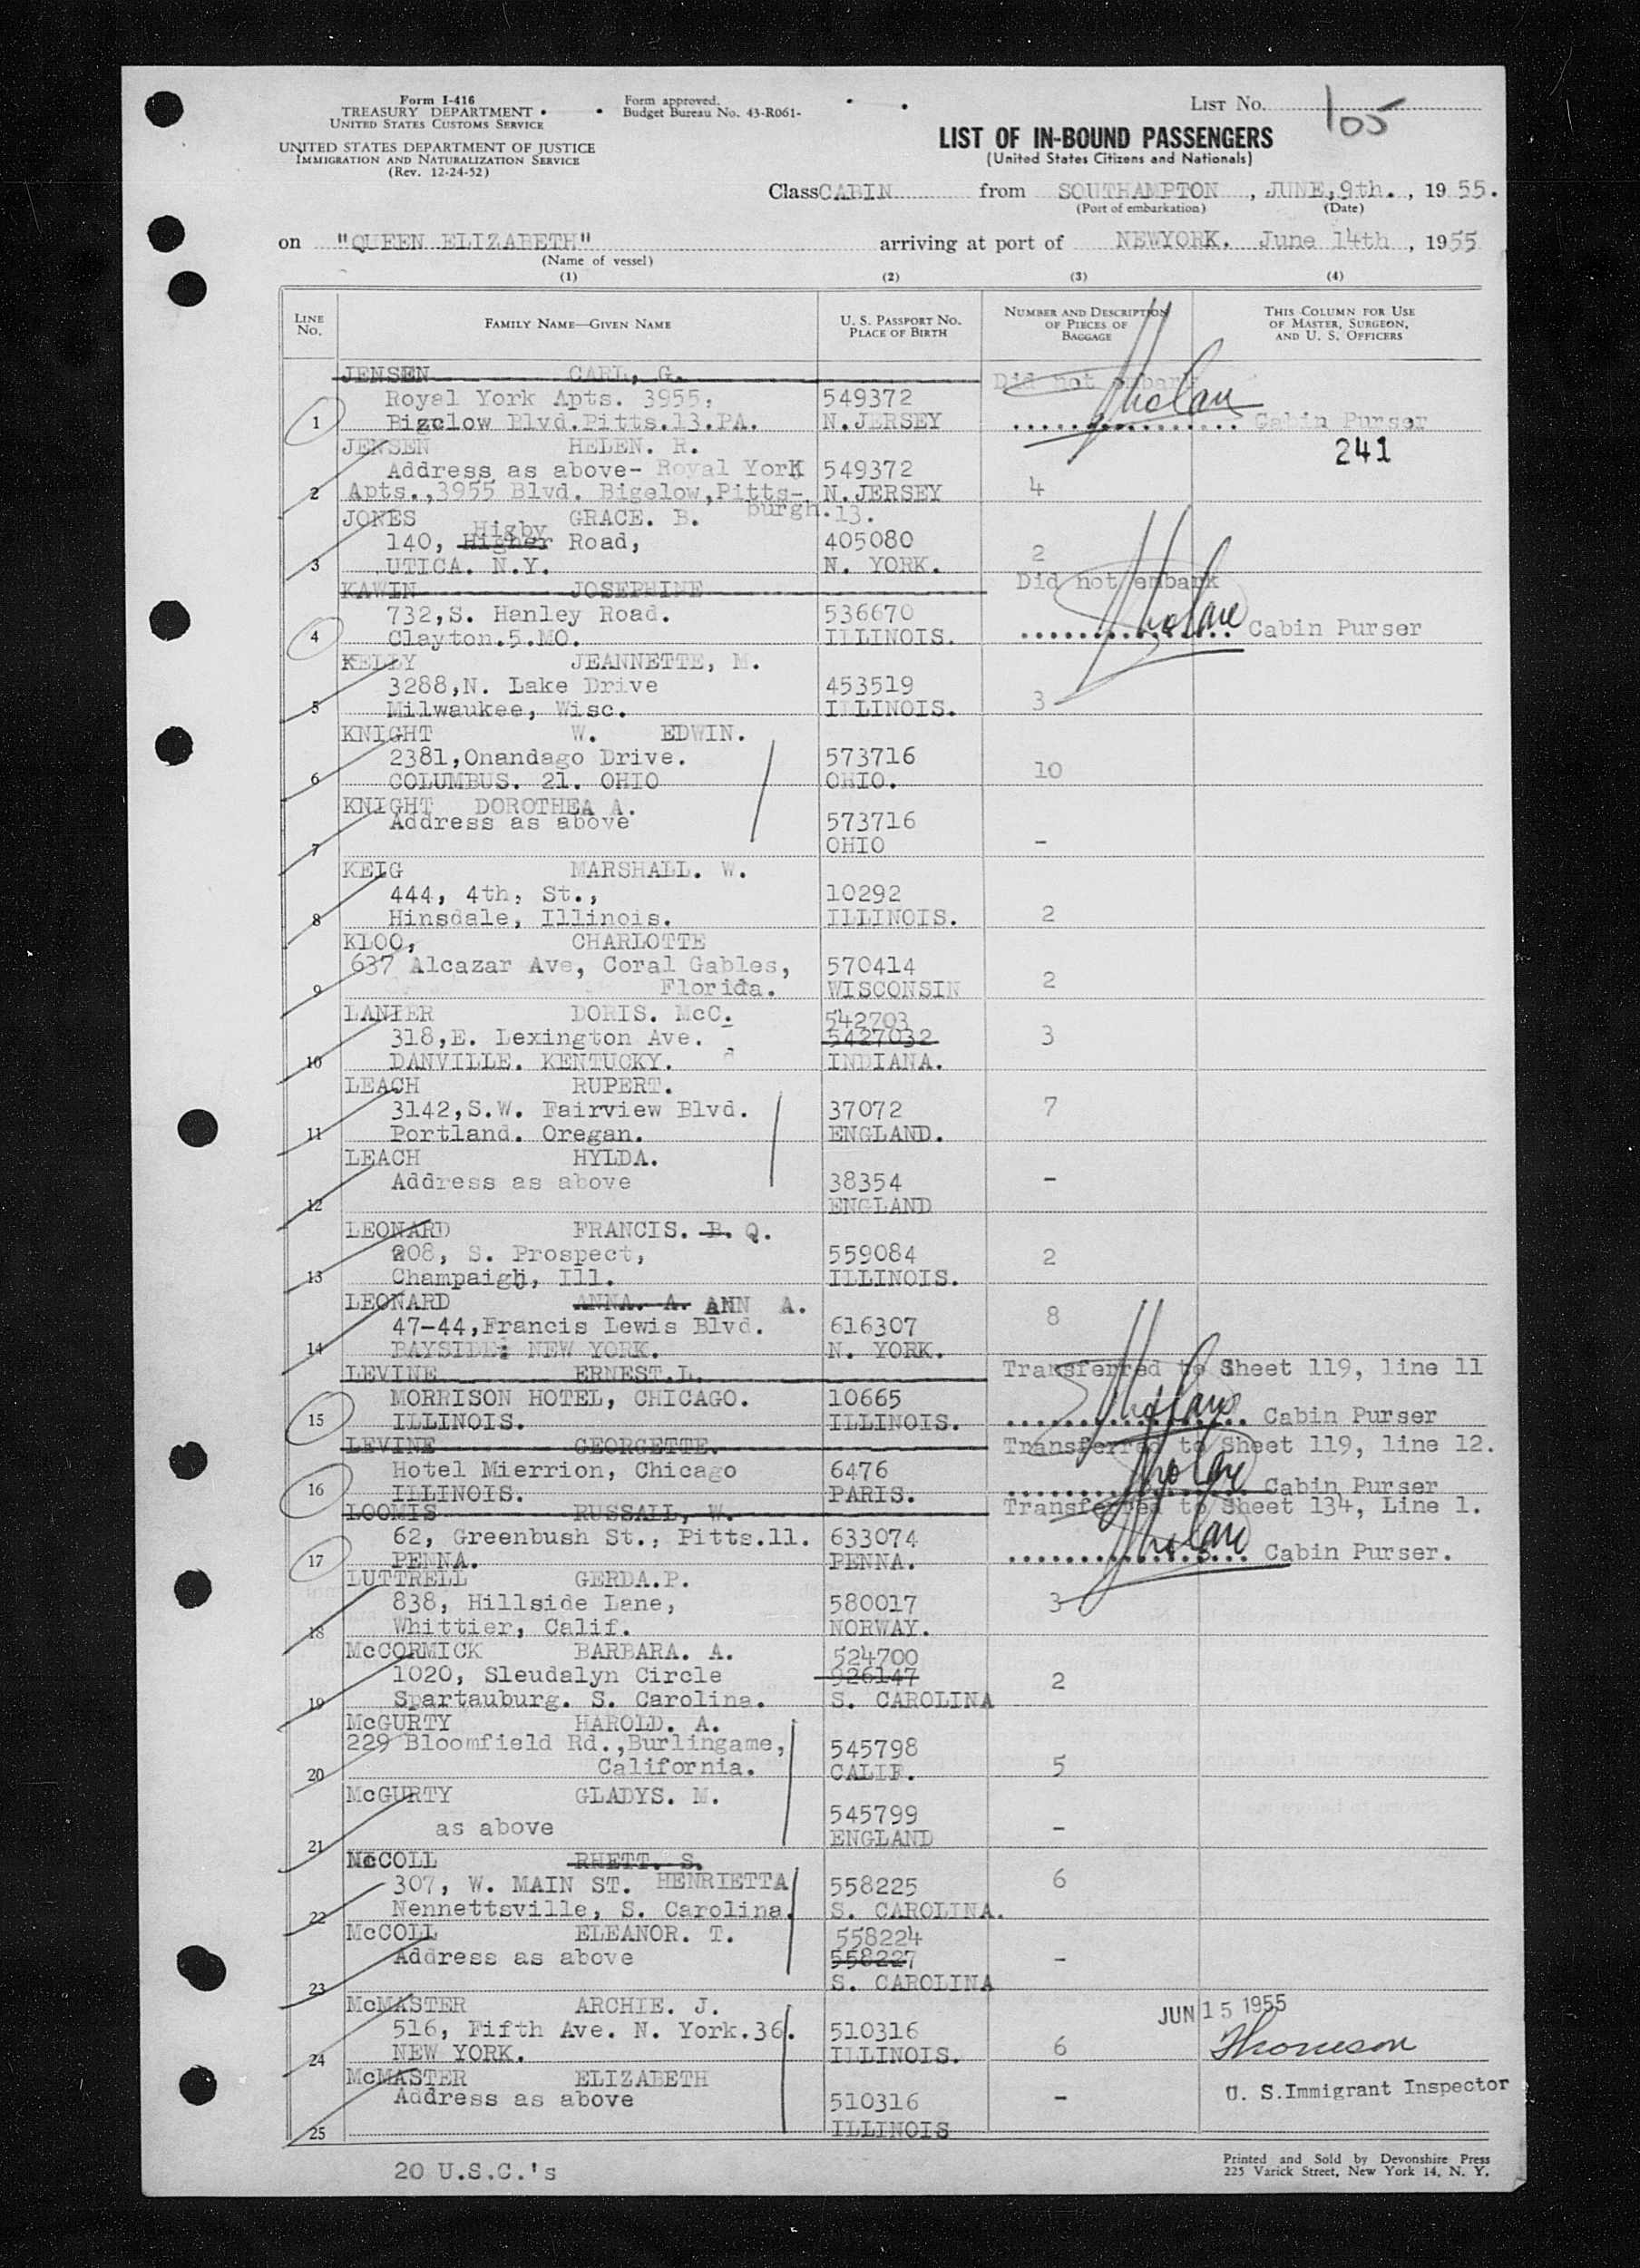 Form I-416
TREASURY DEPARTMENT
UNITED STATES CUSTOMS SERVICE
UNITED STATES DEPARTMENT OF JUSTICE
IMMIGRATION AND NATURALIZATION SERVICE
(Rev. 12-24-52)
Form approved.
Budget Bureau No. 43-R061-
LIST No. 105
LIST OF IN-BOUND PASSENGERS
(United States Citizens and Nationals)
Class CABIN from SOUTHAMPTON, JUNE, 9th., 1955.
(Port of embarkation) (Date)
on "QUEEN ELIZABETH" arriving at port of NEWYORK. June 14th, 1955
(Name of vessel)
(1) (2) (3) (4)
LINE No. FAMILY NAME—GIVEN NAME U. S. PASSPORT NO. PLACE OF BIRTH NUMBER AND DESCRIPTION OF PIECES OF BAGGAGE THIS COLUMN FOR USE OF MASTER, SURGEON, AND U. S. OFFICERS
JENSEN CARL, G. Did not embark
Royal York Apts. 3955, 549372
1 Bigelow Blvd.Pitts.13.PA. N.JERSEY Cabin Purser
JENSEN HELEN. R. 241
Address as above- Royal York 549372
2 Apts.,3955 Blvd. Bigelow,Pitts- N.JERSEY 4
burgh.13.
JONES GRACE. B.
Higby
140, Higher Road, 405080
3 UTICA. N.Y. N. YORK. 2
KAWIN JOSEPHINE Did not embark
732,S. Hanley Road. 536670
4 Clayton.5.MO. ILLINOIS. Cabin Purser
KELLY JEANNETTE, M.
3288,N. Lake Drive 453519
5 Milwaukee, Wisc. ILLINOIS. 3
KNIGHT W. EDWIN.
2381,Onandago Drive. 573716
6 COLUMBUS. 21. OHIO OHIO. 10
KNIGHT DOROTHEA A.
Address as above 573716
7 OHIO -
KEIG MARSHALL. W.
444, 4th, St., 10292
8 Hinsdale, Illinois. ILLINOIS. 2
KLOO, CHARLOTTE
637 Alcazar Ave, Coral Gables, 570414
9 Florida. WISCONSIN 2
LANIER DORIS. McC. 542703
318,E. Lexington Ave. 5427032 3
10 DANVILLE. KENTUCKY. INDIANA.
LEACH RUPERT.
3142,S.W. Fairview Blvd. 37072 7
11 Portland. Oregan. ENGLAND.
LEACH HYLDA.
Address as above 38354 -
12 ENGLAND
LEONARD FRANCIS. B. Q.
208, S. Prospect, 559084 2
13 Champaign, Ill. ILLINOIS.
LEONARD ANNA. A. ANN A.
47-44,Francis Lewis Blvd. 616307 8
14 BAYSIDE: NEW YORK. N. YORK.
LEVINE ERNEST.L. Transferred to Sheet 119, line 11
MORRISON HOTEL, CHICAGO. 10665
15 ILLINOIS. ILLINOIS. Cabin Purser
LEVINE GEORGETTE. Transferred to Sheet 119, line 12.
Hotel Mierrion, Chicago 6476
16 ILLINOIS. PARIS. Cabin Purser
LOOMIS RUSSALL, W. Transferred to Sheet 134, Line 1.
62, Greenbush St., Pitts.11. 633074
17 PENNA. PENNA. Cabin Purser.
LUTTRELL GERDA.P.
838, Hillside Lane, 580017 3
18 Whittier, Calif. NORWAY.
McCORMICK BARBARA. A. 524700
1020, Sleudalyn Circle 926147 2
19 Spartauburg. S. Carolina. S. CAROLINA
McGURTY HAROLD. A.
229 Bloomfield Rd.,Burlingame, 545798
20 California. CALIF. 5
McGURTY GLADYS. M.
as above 545799
21 ENGLAND -
McCOLL RHETT. S.
307, W. MAIN ST. HENRIETTA 558225 6
22 Nennettsville, S. Carolina. S. CAROLINA.
McCOLL ELEANOR. T. 558224
Address as above 558227 -
23 S. CAROLINA
McMASTER ARCHIE. J. JUN 15 1955
516, Fifth Ave. N. York.36. 510316
24 NEW YORK. ILLINOIS. 6
McMASTER ELIZABETH
Address as above 510316 - U. S.Immigrant Inspector
25 ILLINOIS
20 U.S.C.'s
Printed and Sold by Devonshire Press
225 Varick Street, New York 14, N. Y.